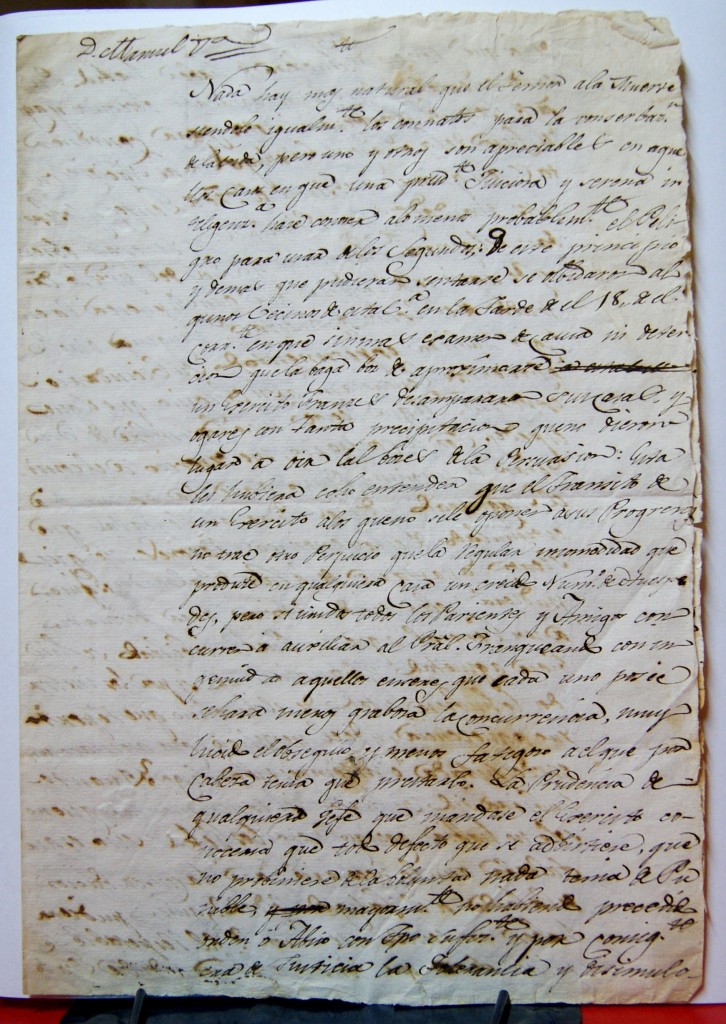 D. Manuel
Nada hay mas natural que el temor a la Muerte
siendolo igualmte. los conatos para la conserbazn.
de la vida, pero uno y otros son apreciables en aque
llos casos en que una prudte. Juiciosa y serena in
teligenca. hace conocer al menos probablemte. el Peli
gro para usar de los Segundos; De este principio
y demas que pudieran sentarse se olbidaron al
gunos Vecinos de esta la. en la Tarde de el 18. de el
corrte. en que sin mas examen de causa ni deter
que la baga bos de aproximarse
un Exercito Frances desampararon sus casas, y
ogares con tanta precipitacion que no dieron
lugar a oir las boces de la Persuasion: Esta
les hubiera echo entender que el Transito de
un Exercito a los que no se le oponen a sus Progresos
no trae otro Perjuicio que la regular incomodidad que
produce en qualquiera casa un crecido Numo. de Huespe
des, pero si unidos todos los Parientes y Amigos con
curren a auxiliar al Pral. Franqueando con in
genuidad aquellos enseres que cada uno posee
se hara menos grabosa la concurrencia, muy
lucido el obsequio y menos fatigoso a el que por
Cabeza tenia que prestarlo. La Prudencia de
qualquiera Jefe que mandase el Exercito co-
noceria que todo defecto que se adbirtiese, que
no probiniese de la boluntad nada tenia de Pu
nible, mayormte. no habiendo precedido
orden o Abiso con tpo. sufizte. y por consigte.
era de Justicia la Tolerancia y disimulo-